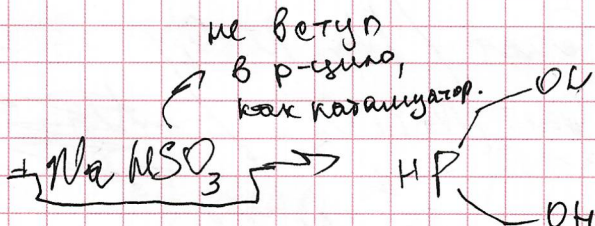 не вступ
в р-цию,
как катализатор.
+ NaHSO3 → HP
OH
OH